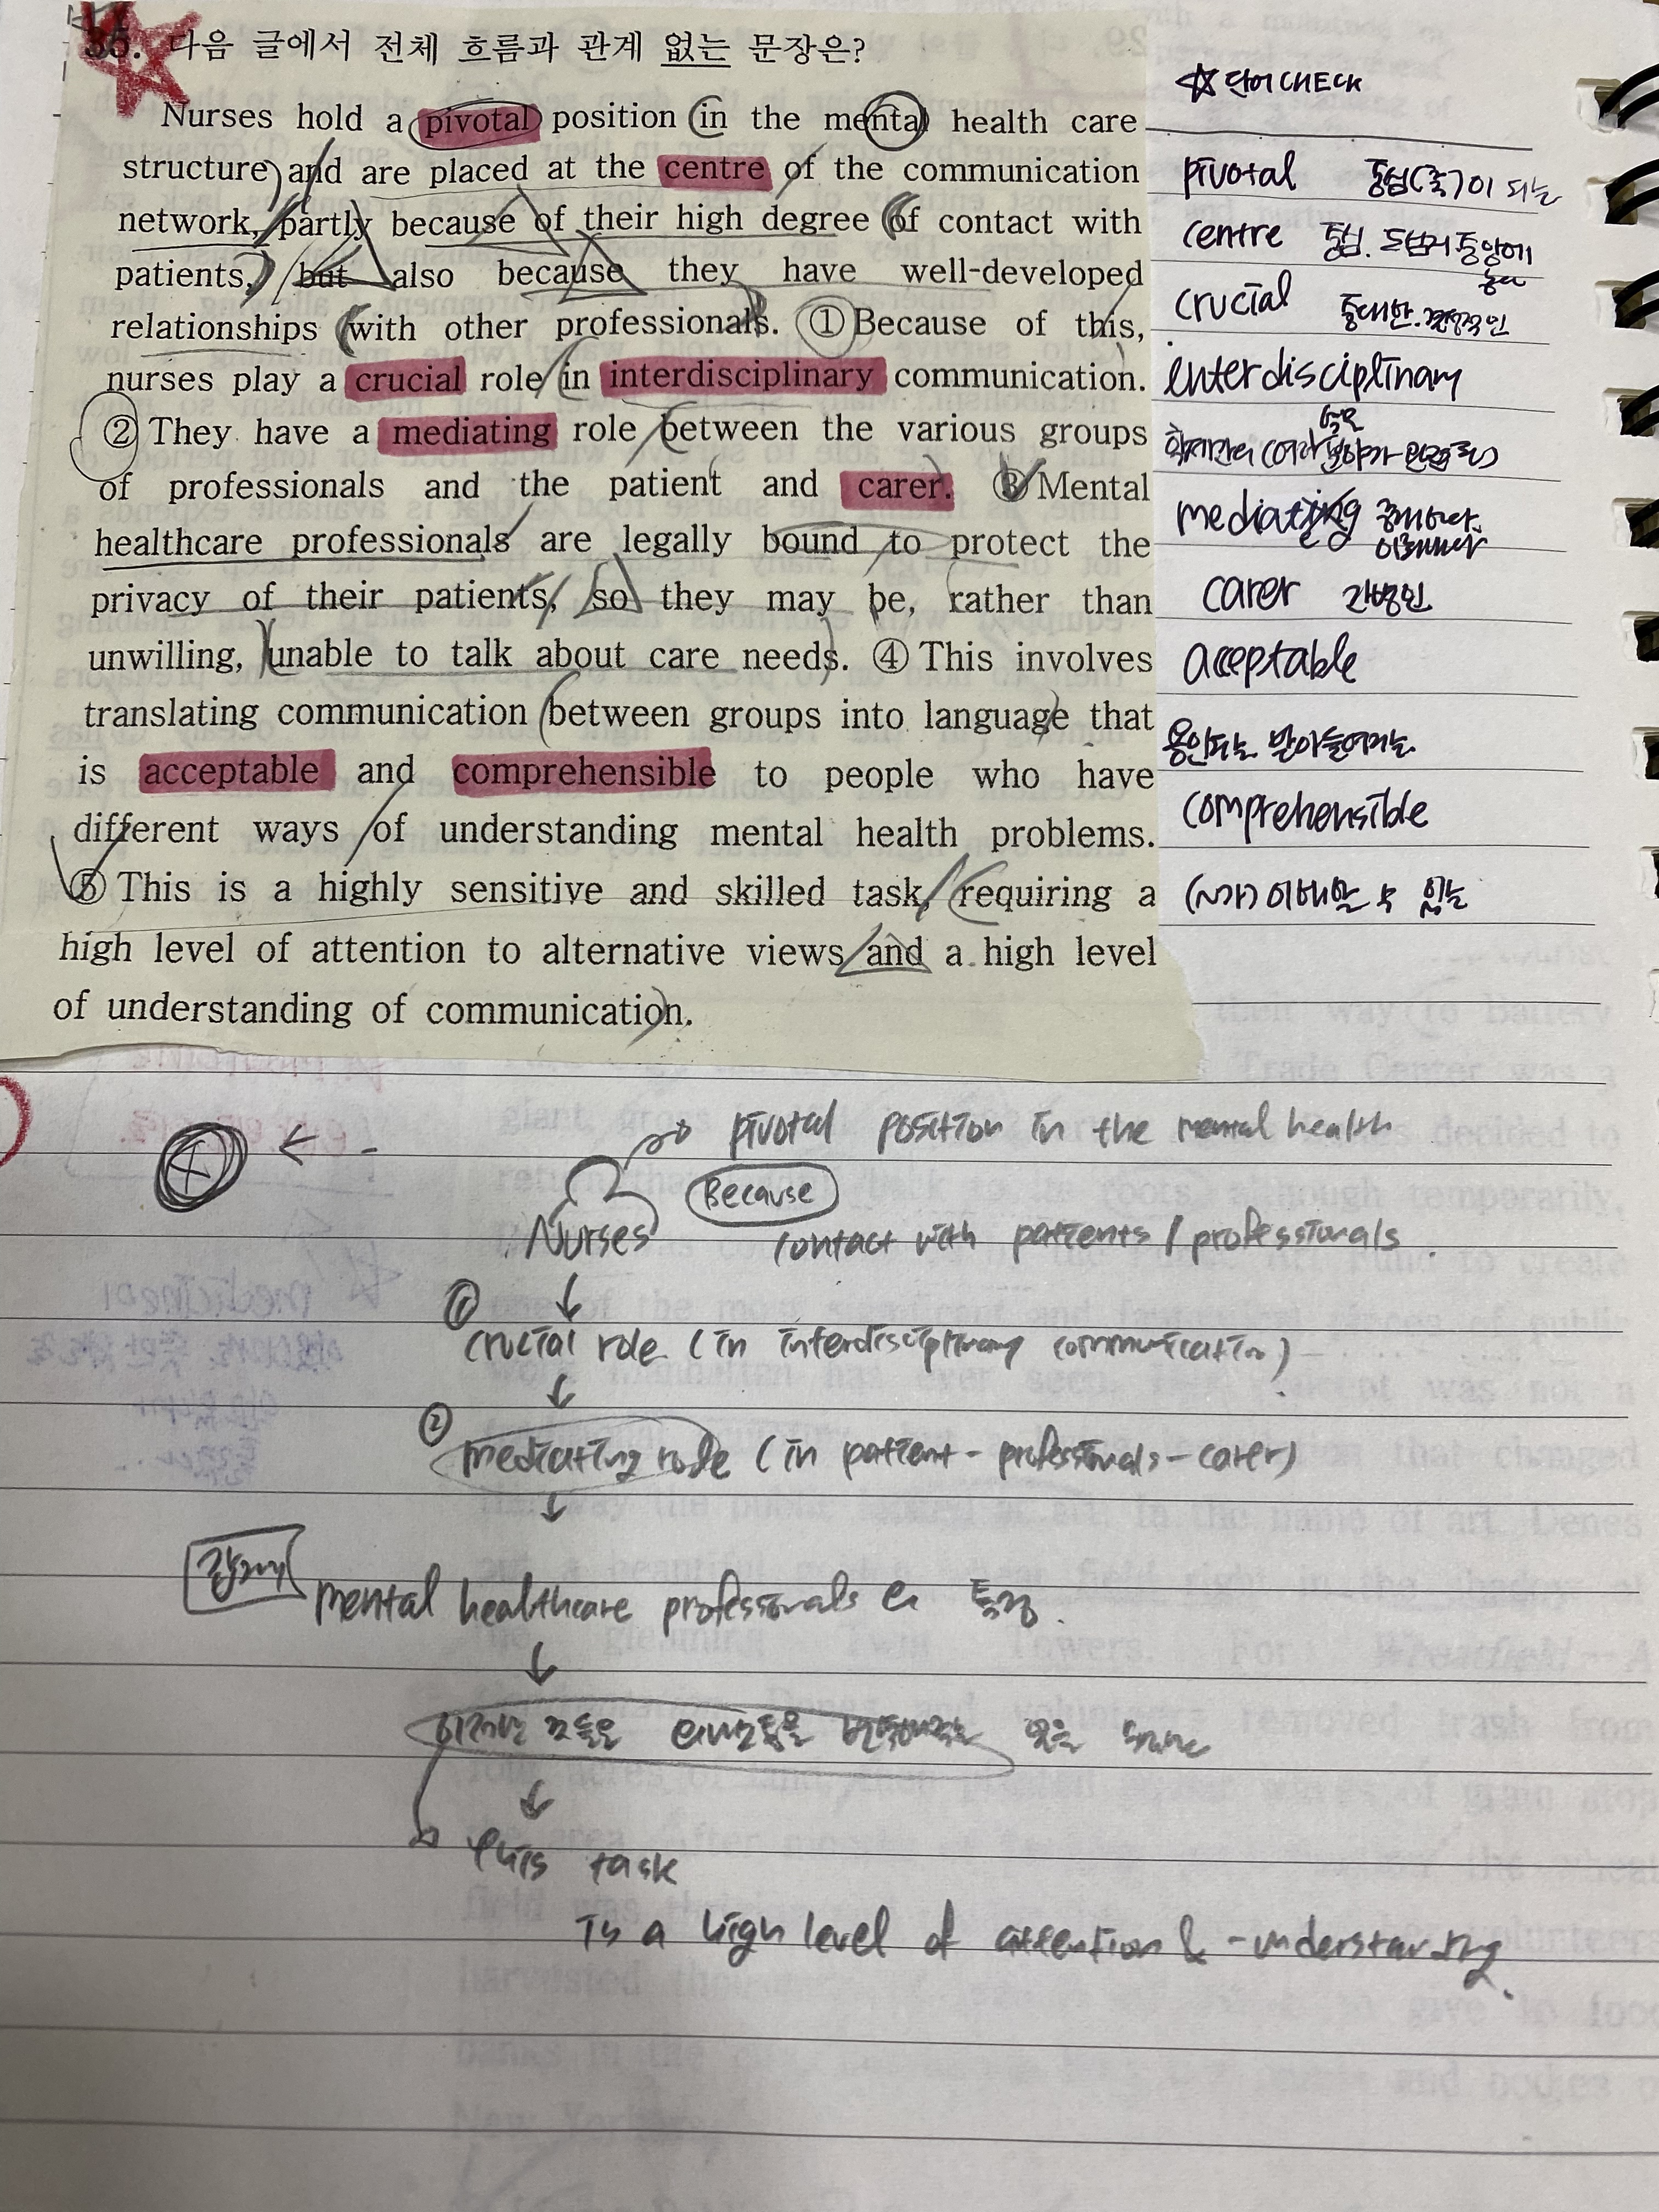 35. 다음 글에서 전체 흐름과 관계 없는 문장은?
Nurses hold a pivotal position in the mental health care
structure and are placed at the centre of the communication
network, partly because of their high degree of contact with
patients, but also because they have well-developed
relationships with other professionals. ① Because of this,
nurses play a crucial role in interdisciplinary communication.
② They have a mediating role between the various groups
of professionals and the patient and carer. ③ Mental
healthcare professionals are legally bound to protect the
privacy of their patients, so they may be, rather than
unwilling, unable to talk about care needs. ④ This involves
translating communication between groups into language that
is acceptable and comprehensible to people who have
different ways of understanding mental health problems.
⑤ This is a highly sensitive and skilled task, requiring a
high level of attention to alternative views and a high level
of understanding of communication.
☆ 단어 CHECK
pivotal 중심(축)이 되는
centre 중심. 도심지 중앙에
crucial 중대한. 결정적인
interdisciplinary
mediate 중재하다.
carer 간병인
acceptable
용인되는 받아들여지는.
comprehensible
(~가) 이해할 수 있는
pivotal position in the mental health
Because
Nurses contact with patients / professionals.
①
crucial role (in interdisciplinary communication)
②
mediating role (in patient - professionals - carer)
mental healthcare professionals 의 특징.
this task
Is a high level of attention & ~understanding.